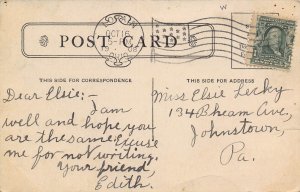 POST CARD
THIS SIDE FOR CORRESPONDENCE
THIS SIDE FOR ADDRESS
Dear Elsie:- I am
well and hope you
are the same. Excuse
me for not writing.
Your friend,
Edith.
Miss Elsie Lecky
134 Bheam Ave,
Johnstown,
Pa.